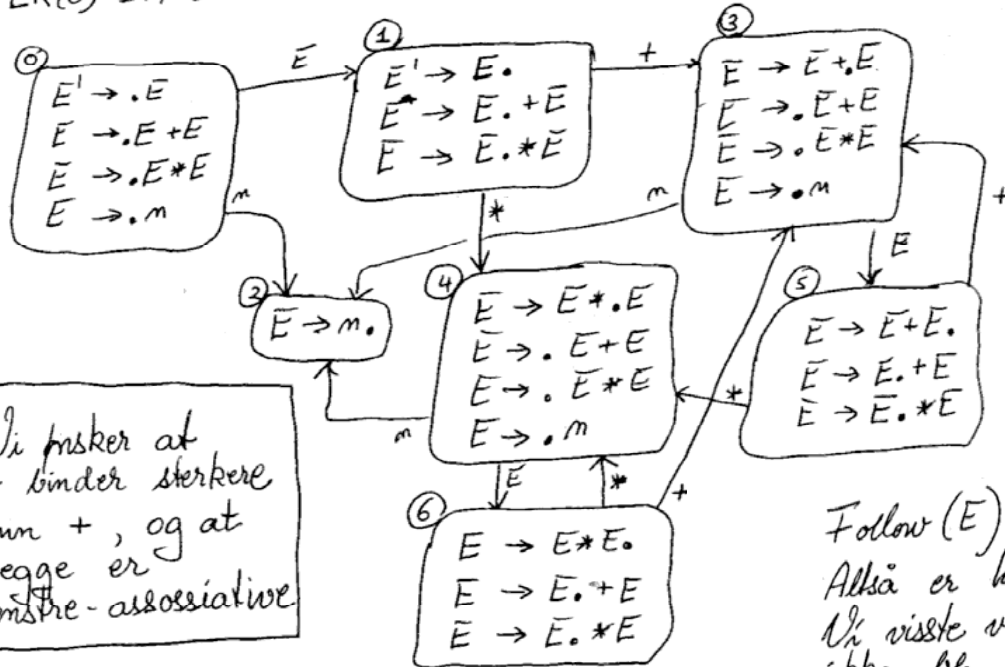 LR(0)
0
E' → .E
E → .E+E
E → .E*E
E → .n
E
n
1
E' → E.
E → E.+E
E → E.*E
+
*
3
E → E+.E
E → .E+E
E → .E*E
E → .n
n
E
+
2
E → n.
4
E → E*.E
E → .E+E
E → .E*E
E → .n
n
E
*
+
5
E → E+E.
E → E.+E
E → E.*E
*
6
E → E*E.
E → E.+E
E → E.*E
Vi ønsker at
binder sterkere
+, og at
er
-assossiative
Follow (E)
Altså er
Vi visste